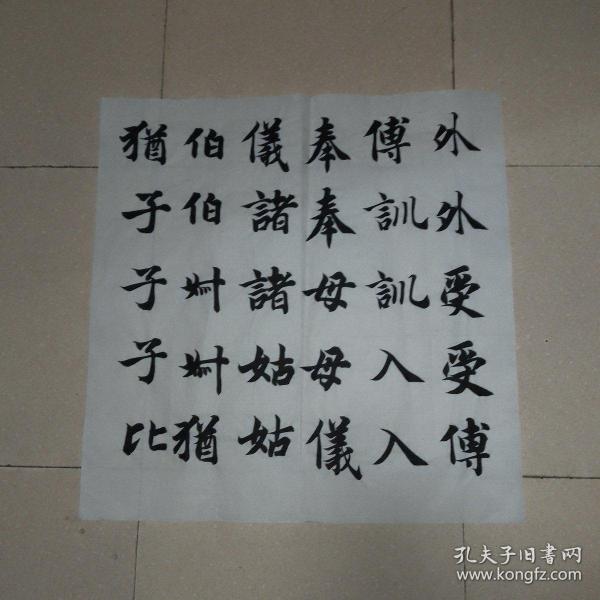 外外受受傅
傅訓訓入入
奉奉母母儀
儀諸諸姑姑
伯伯叔叔猶
猶子子子比
孔夫子旧書网
www.kongfz.com